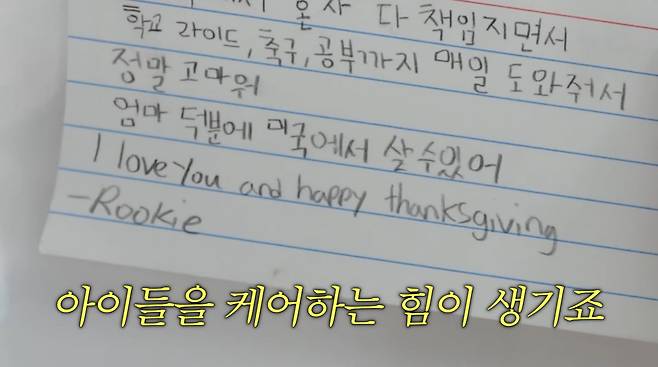 혼자 다 책임지면서
학교 라이드, 축구, 공부까지 매일 도와줘서
정말 고마워
엄마 덕분에 미국에서 살 수 있어
I love you and happy thanksgiving
-Rookie
아이들을 케어하는 힘이 생기죠